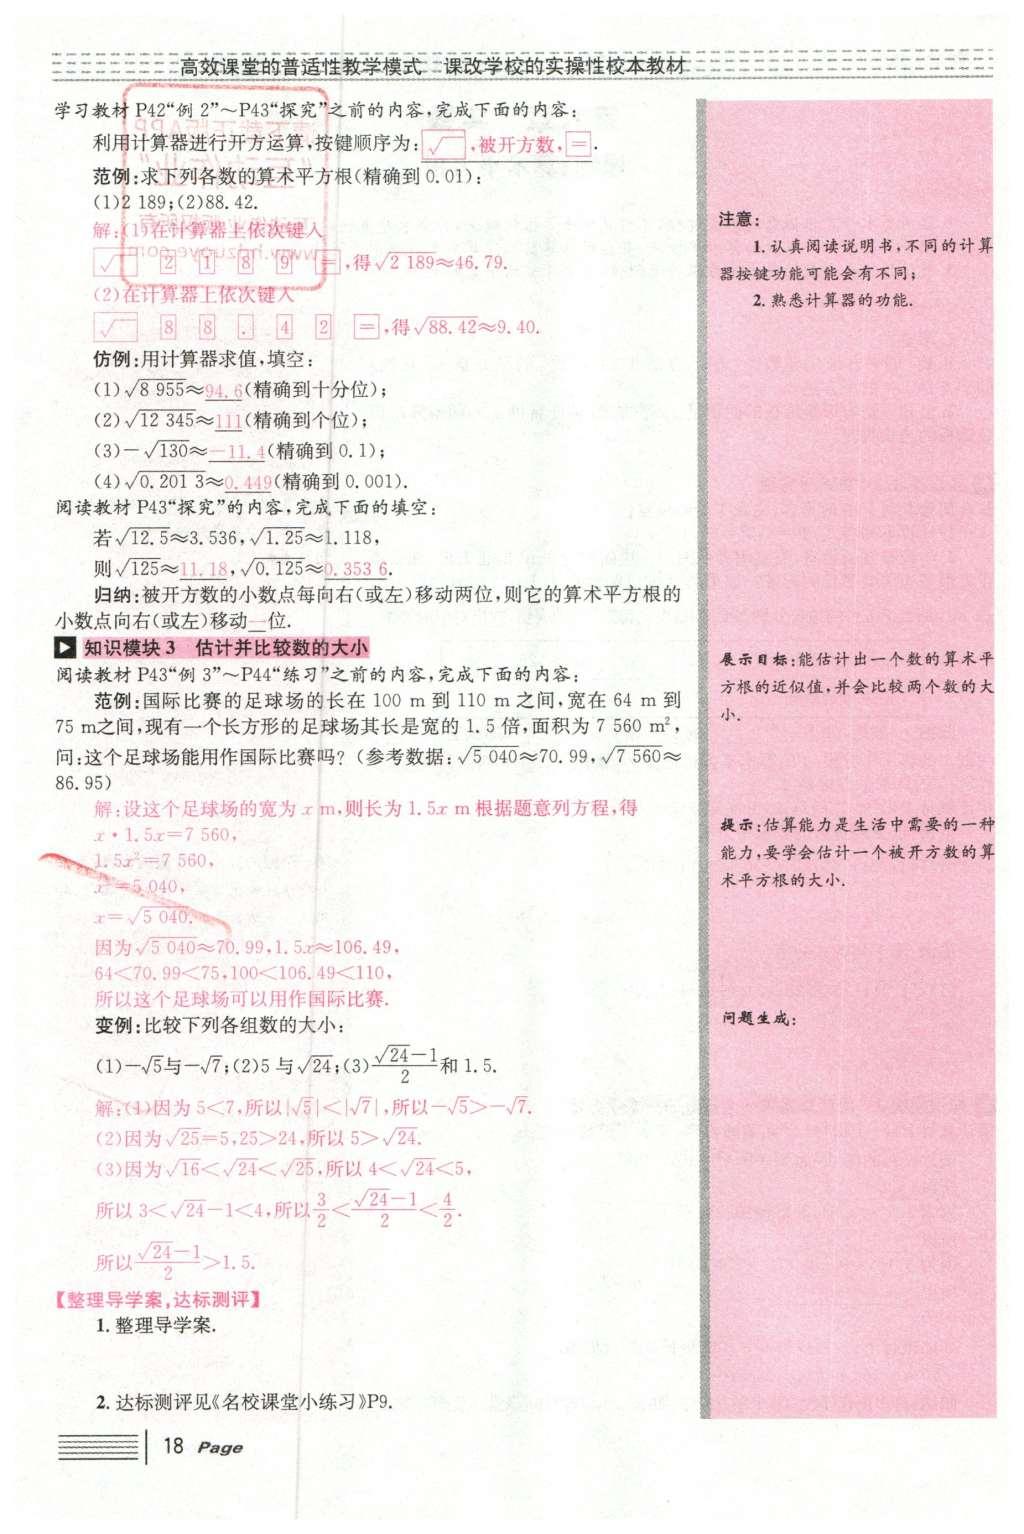 高效课堂的普适性教学模式　课改学校的实操性校本教材
学习教材 P42“例 2”～P43“探究”之前的内容,完成下面的内容:
利用计算器进行开方运算,按键顺序为: √ ,被开方数, = .
范例:求下列各数的算术平方根(精确到 0.01):
(1)2 189;(2)88.42.
解:(1)在计算器上依次键入
√ 2 1 8 9 = ,得√2 189≈46.79.
(2)在计算器上依次键入
√ 8 8 . 4 2 = ,得√88.42≈9.40.
仿例:用计算器求值,填空:
(1)√8 955≈94.6(精确到十分位);
(2)√12 345≈111(精确到个位);
(3)-√130≈-11.4(精确到 0.1);
(4)√0.201 3≈0.449(精确到 0.001).
阅读教材 P43“探究”的内容,完成下面的填空:
若√12.5≈3.536,√1.25≈1.118,
则√125≈11.18,√0.125≈0.353 6.
归纳:被开方数的小数点每向右(或左)移动两位,则它的算术平方根的
小数点向右(或左)移动一位.
知识模块 3　估计并比较数的大小
阅读教材 P43“例 3”～P44“练习”之前的内容,完成下面的内容:
范例:国际比赛的足球场的长在 100 m 到 110 m 之间,宽在 64 m 到
75 m之间,现有一个长方形的足球场其长是宽的 1.5 倍,面积为 7 560 m²,
问:这个足球场能用作国际比赛吗? (参考数据:√5 040≈70.99,√7 560≈
86.95)
解:设这个足球场的宽为 x m,则长为 1.5x m 根据题意列方程,得
x·1.5x=7 560,
1.5x²=7 560,
x²=5 040,
x=√5 040.
因为√5 040≈70.99,1.5x≈106.49,
64<70.99<75,100<106.49<110,
所以这个足球场可以用作国际比赛.
变例:比较下列各组数的大小:
(1)-√5与-√7;(2)5 与√24;(3)(√24-1)/2和 1.5.
解:(1)因为 5<7,所以|√5|<|√7|,所以-√5>-√7.
(2)因为√25=5,25>24,所以 5>√24.
(3)因为√16<√24<√25,所以 4<√24<5,
所以 3<√24-1<4,所以3/2<(√24-1)/2<4/2.
所以(√24-1)/2>1.5.
【整理导学案,达标测评】
1. 整理导学案.
2. 达标测评见《名校课堂小练习》P9.
18 Page
注意:
1. 认真阅读说明书,不同的计算
器按键功能可能会有不同;
2. 熟悉计算器的功能.
展示目标:能估计出一个数的算术平
方根的近似值,并会比较两个数的大
小.
提示:估算能力是生活中需要的一种
能力,要学会估计一个被开方数的算
术平方根的大小.
问题生成: